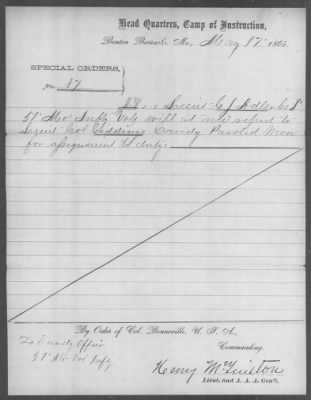 Head Quarters, Camp of Instruction,
Benton Barracks, Mo., May 17" 1863.
SPECIAL ORDERS,
No. 87
Lieut G. J. Adler
Mo Infty Vols will at once report to
Col Giddings Comdg Paroled Men
for assignment to duty.
By Order of Col. Bonneville, U. S. A.
Commanding.
To Comdg Officer
Mo Vol Infty
Henry
Lieut. and A. A. A. Gen'l.